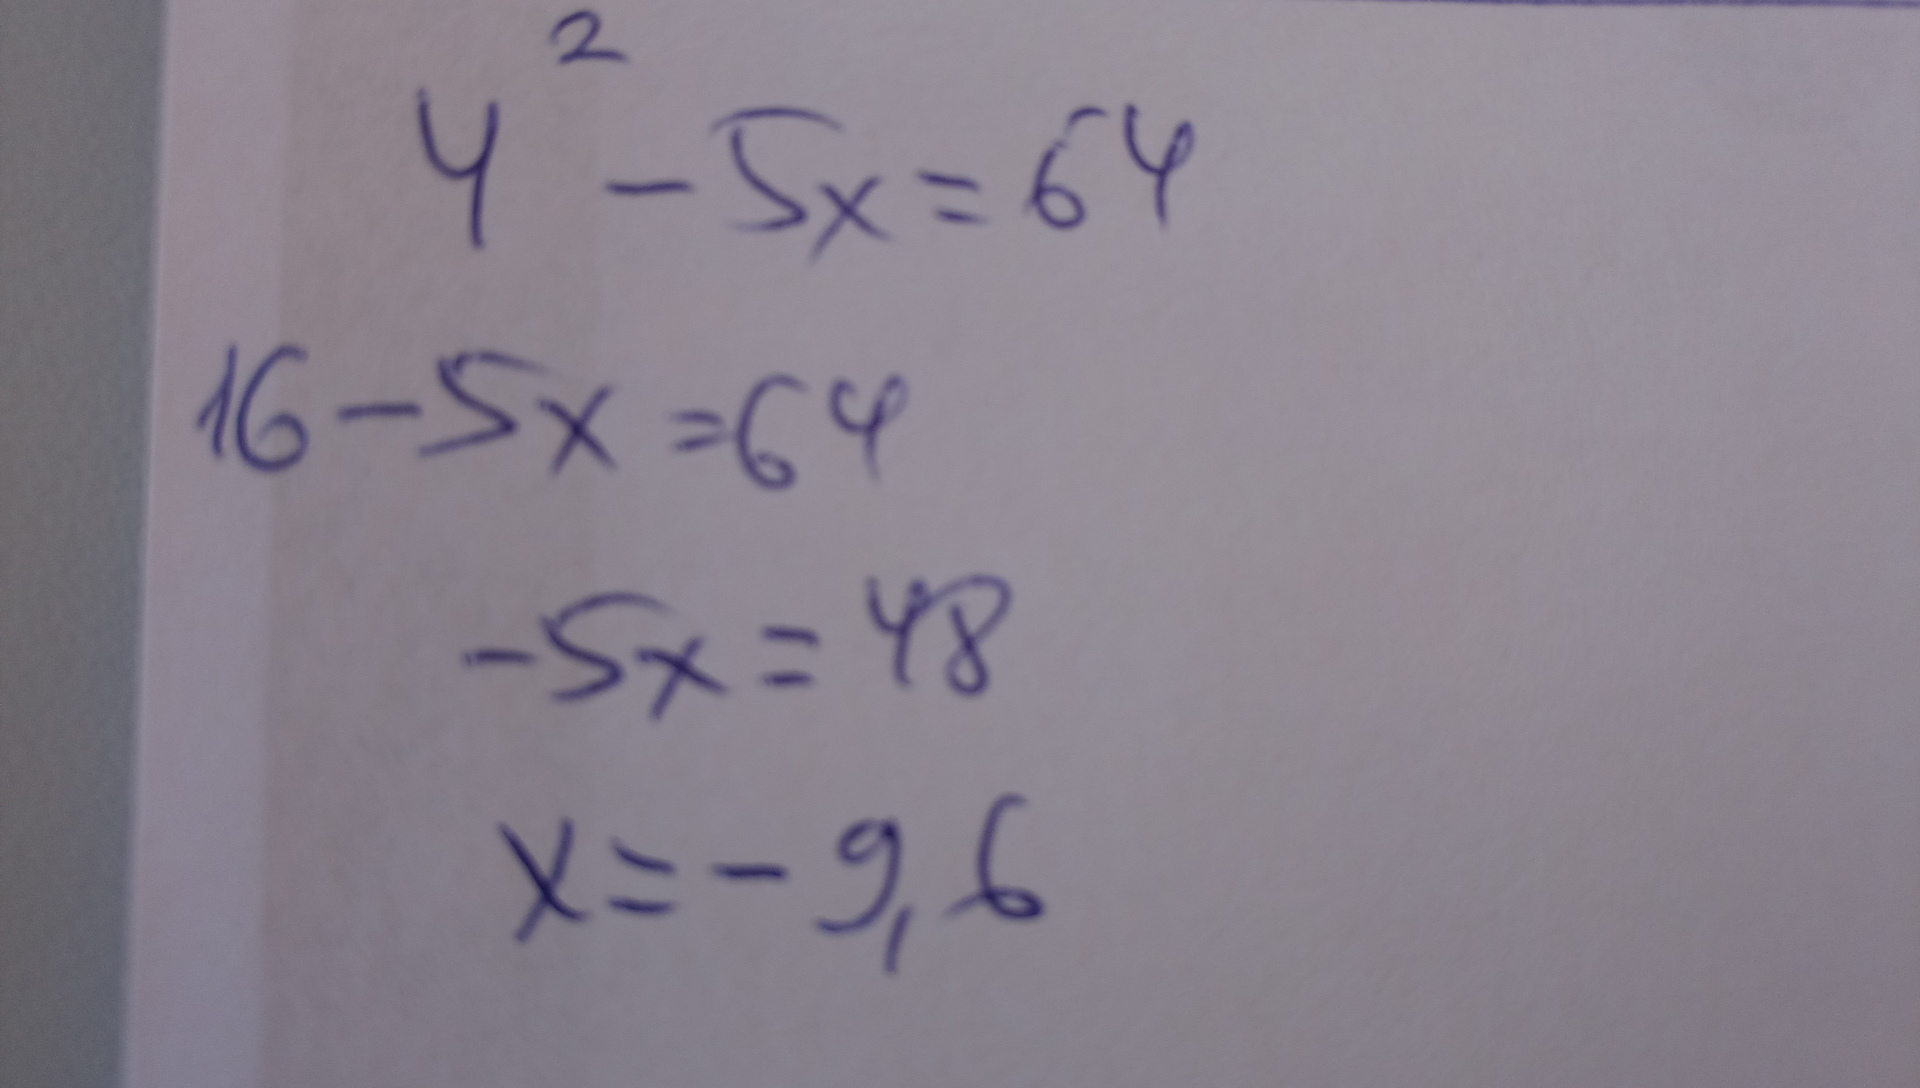 4² - 5x = 64
16 - 5x = 64
-5x = 48
x = -9,6